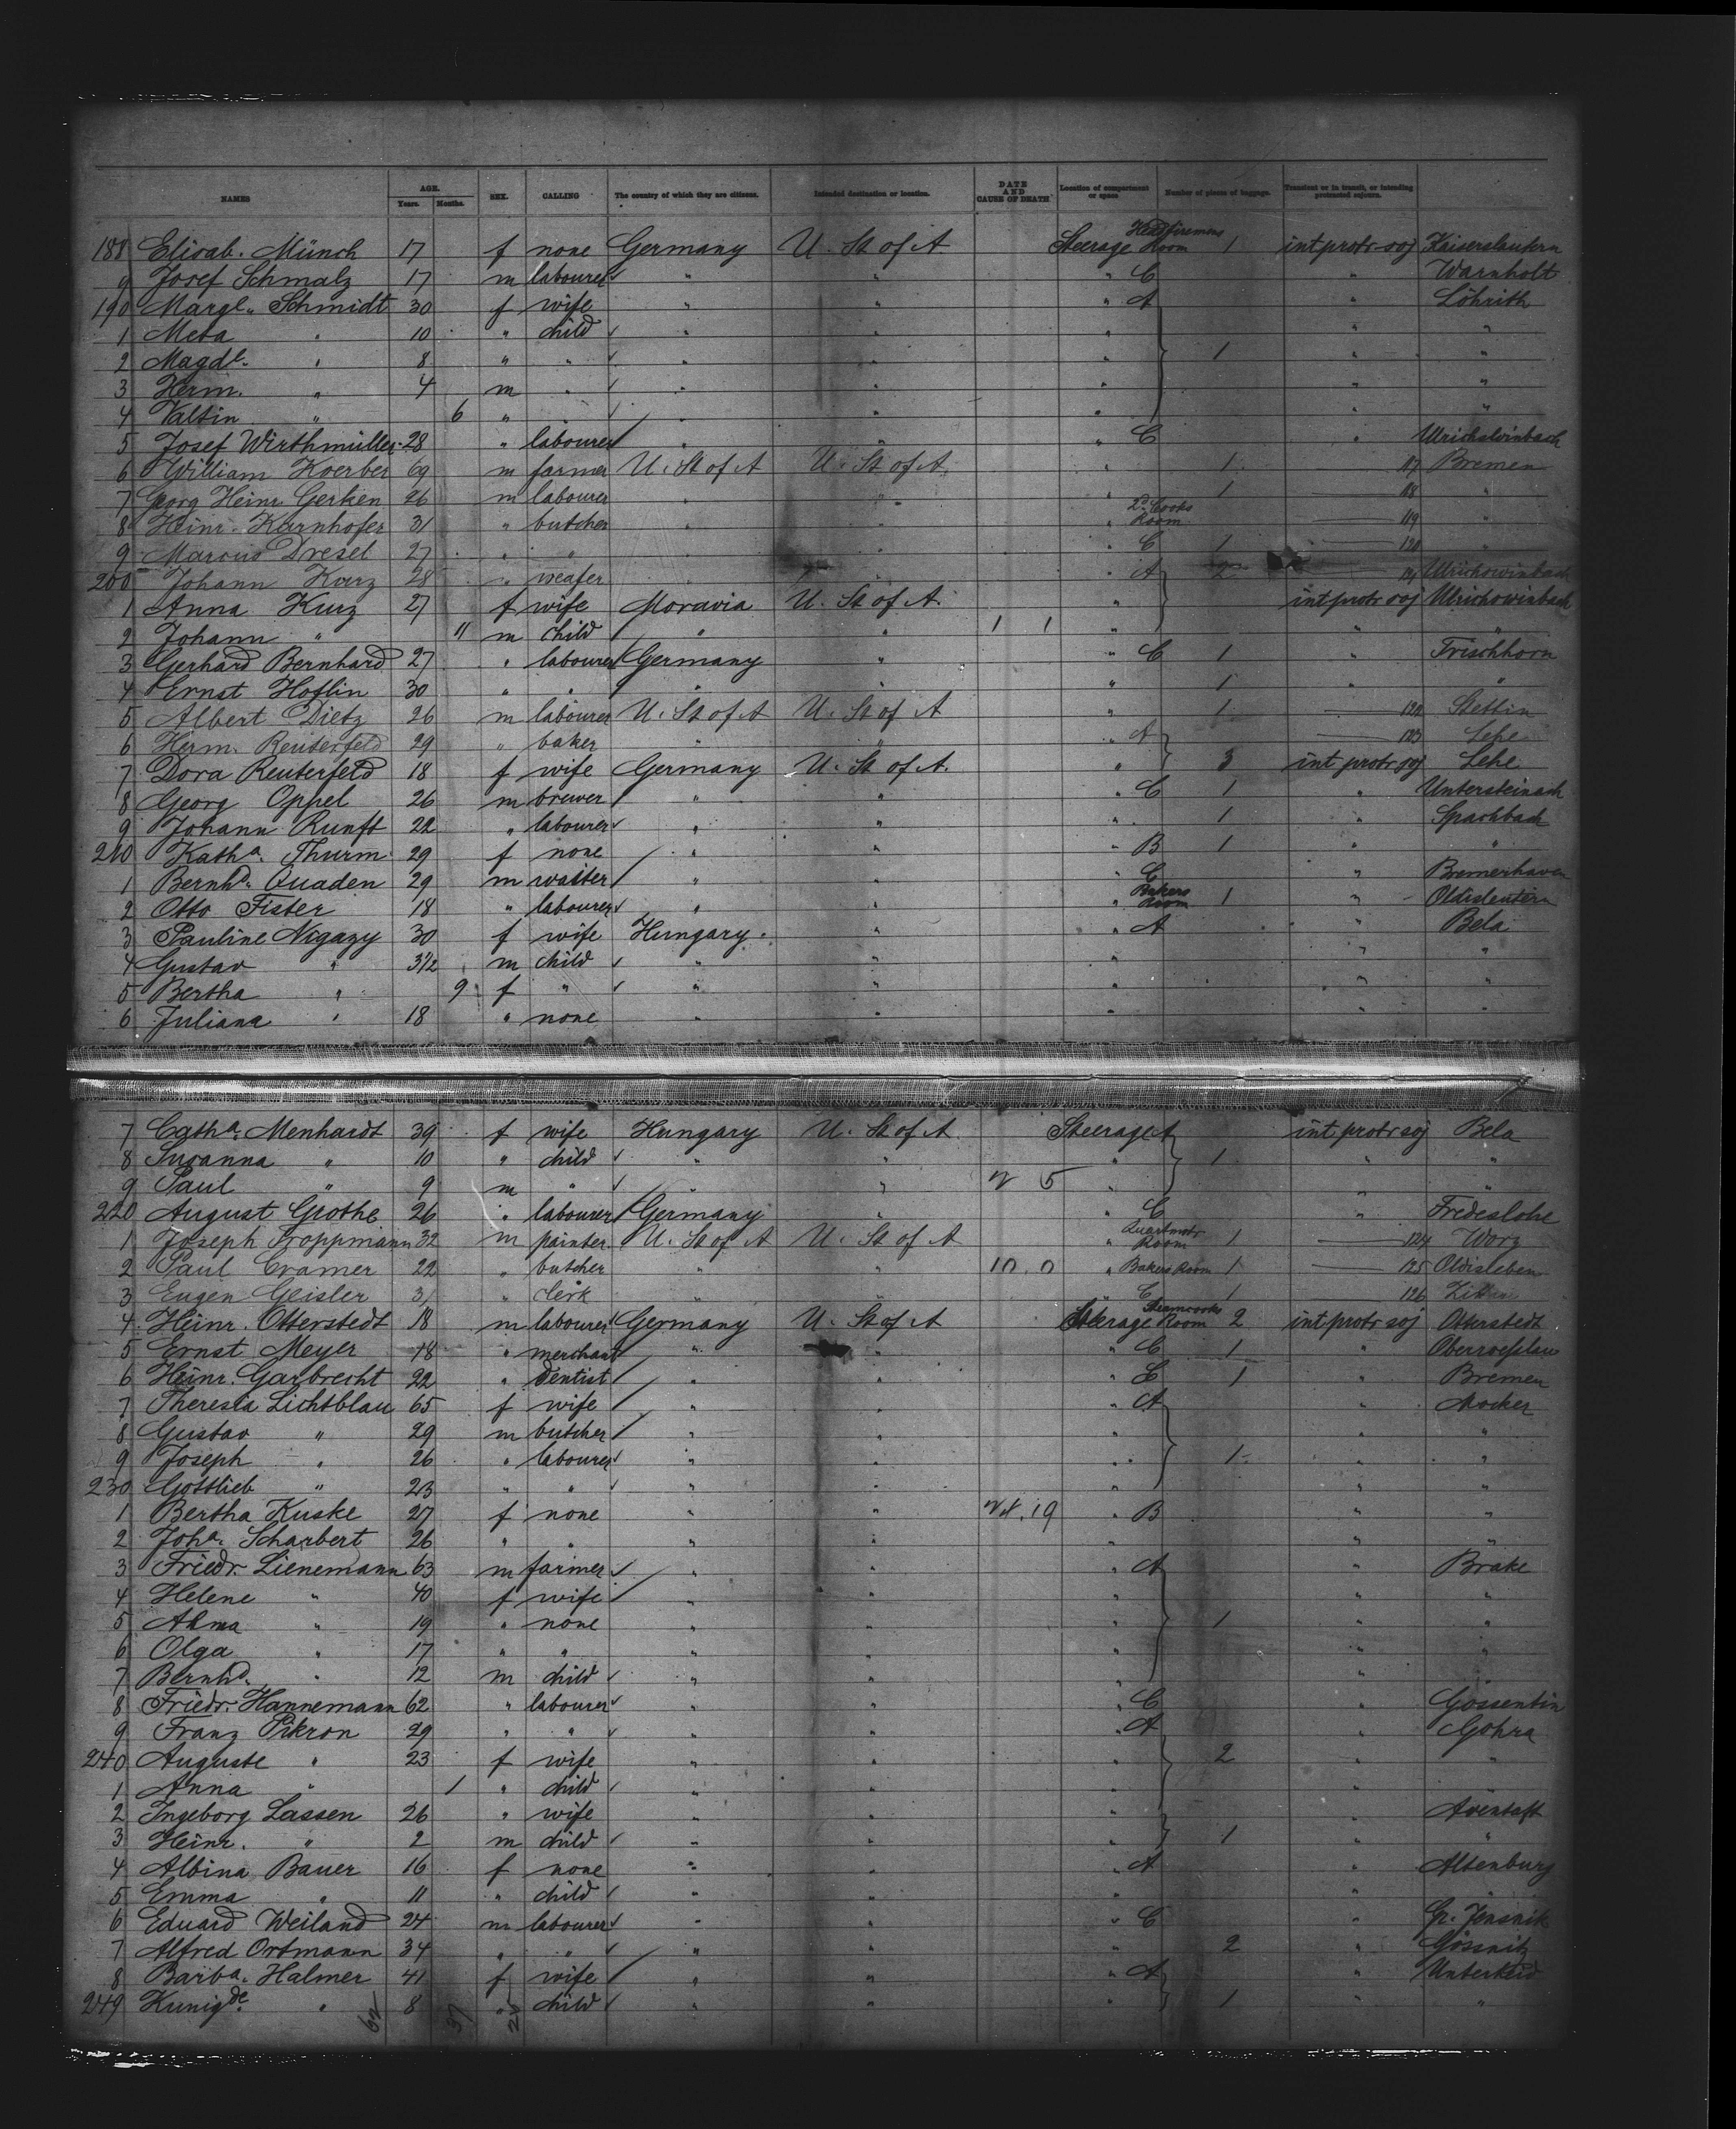 NAMES AGE. Years. Months. SEX. CALLING The country of which they are citizens. Intended destination or location. DATE AND CAUSE OF DEATH Location of compartment or space Number of pieces of baggage. Transient or in transit, or intending protracted sojourn.
188 Elisab. Münch 17 f none Germany U. St of A Steerage Headfiremens Room 1 int protr soj Kaiserslautern
9 Josef Schmalz 17 m labourer " " " C " Warnholt
190 Margt. Schmidt 30 f wife " " " A " Löhrith
1 Meta " 10 " child " " " " "
2 Magdl. " 8 " " " " " 1 " "
3 Herm. " 4 m " " " " " "
4 Valtin " 6 " " " " " " "
5 Josef Wirthmüller 28 " labourer " " " C "
6 William Koerber 69 m farmer U. St of A U. St of A " 1 117 Bremen
7 Georg Heinr Gerken 26 m labourer " " " 1 118 "
8 Heinr. Karnhofer 31 " butcher " " " 2d Cooks Room 119 "
9 Marcus Dresel 27 " " " " " C 1 120 "
200 Johann Kurz 28 " weafer " " " A 2 121
1 Anna Kurz 27 f wife Moravia U. St of A " int protr soj
2 Johann " 11 m child " " 1 1 " " "
3 Gerhard Bernhard 27 " labourer Germany " " C 1 " Frischhorn
4 Ernst Hoflin 30 " " " " " 1 " "
5 Albert Dietz 26 m labourer U. St of A U. St of A " 1 122 Stettin
6 Herm. Reuterfeld 29 " baker " " " A 123 Lehe
7 Dora Reuterfeld 18 f wife Germany U. St of A. " 3 int protr soj Lehe
8 Georg Oppel 26 m brewer " " " C 1 " Untersteinach
9 Johann Runft 22 " labourer " " " 1 " Spachbach
210 Katha. Thurm 29 f none " " " B 1 " "
1 Bernhd. Quaden 29 m waiter " " " C " Bremerhaven
2 Otto Fister 18 " labourer " " " Bakers Room 1 "
3 Pauline Nigazy 30 f wife Hungary " " A " Bela
4 Gustav " 3 1/2 m child " " " " "
5 Bertha " 9 f " " " " " "
6 Juliana " 18 " none " " " " "
7 Catha. Menhardt 39 f wife Hungary U. St of A Steerage A int protr soj Bela
8 Susanna " 10 " child " " " 1 " "
9 Paul " 9 m " " " 5 " " "
220 August Grothe 26 " labourer Germany " " C " Fredeslohe
1 Joseph Troppmann 32 m painter U. St of A U. St of A " Room 1 124 Worz
2 Paul Cramer 22 " butcher " " 10 0 " Bakers Room 1 125 Oldisleben
3 Eugen Geisler 31 " clerk " " " C 1 126
4 Heinr. Otterstedt 18 m labourer Germany U. St of A Steerage Steamcooks Room 2 int protr soj Otterstedt
5 Ernst Meyer 18 " merchant " " " C 1 "
6 Heinr. Garbrecht 22 " dentist " " " C 1 " Bremen
7 Theresia Lichtblau 65 f wife " " " A " Mocker
8 Gustav " 29 m butcher " " " " "
9 Joseph " 26 " labourer " " " 1 " "
230 Gottlieb " 23 " " " " " " "
1 Bertha Kuske 27 f none " " 19 " B " "
2 Joha. Scharbert 26 " " " " " " "
3 Friedr. Lienemann 63 m farmer " " " A " Brake
4 Helene " 40 f wife " " " " "
5 Alma " 19 " none " " " 1 " "
6 Olga " 17 " " " " " " "
7 Bernhd. " 12 m child " " " " "
8 Friedr. Hannemann 62 " labourer " " " C " Gossentin
9 Franz Pikron 29 " " " " " A " Gohra
240 Auguste " 23 f wife " " " 2 " "
1 Anna " 1 " child " " " " "
2 Ingeborg Lassen 26 " wife " " " " Aventoft
3 Heinr. " 2 m child " " " 1 " "
4 Albina Bauer 16 f none " " " A " Altenburg
5 Emma " 11 " child " " " " "
6 Eduard Weiland 24 m labourer " " " C " Gr. Jensnik
7 Alfred Ortmann 34 " " " " " 2 " Gössnitz
8 Barba. Halmer 41 f wife " " " A "
249 Kunigde. " 8 " child " " " 1 " "
62 37 25